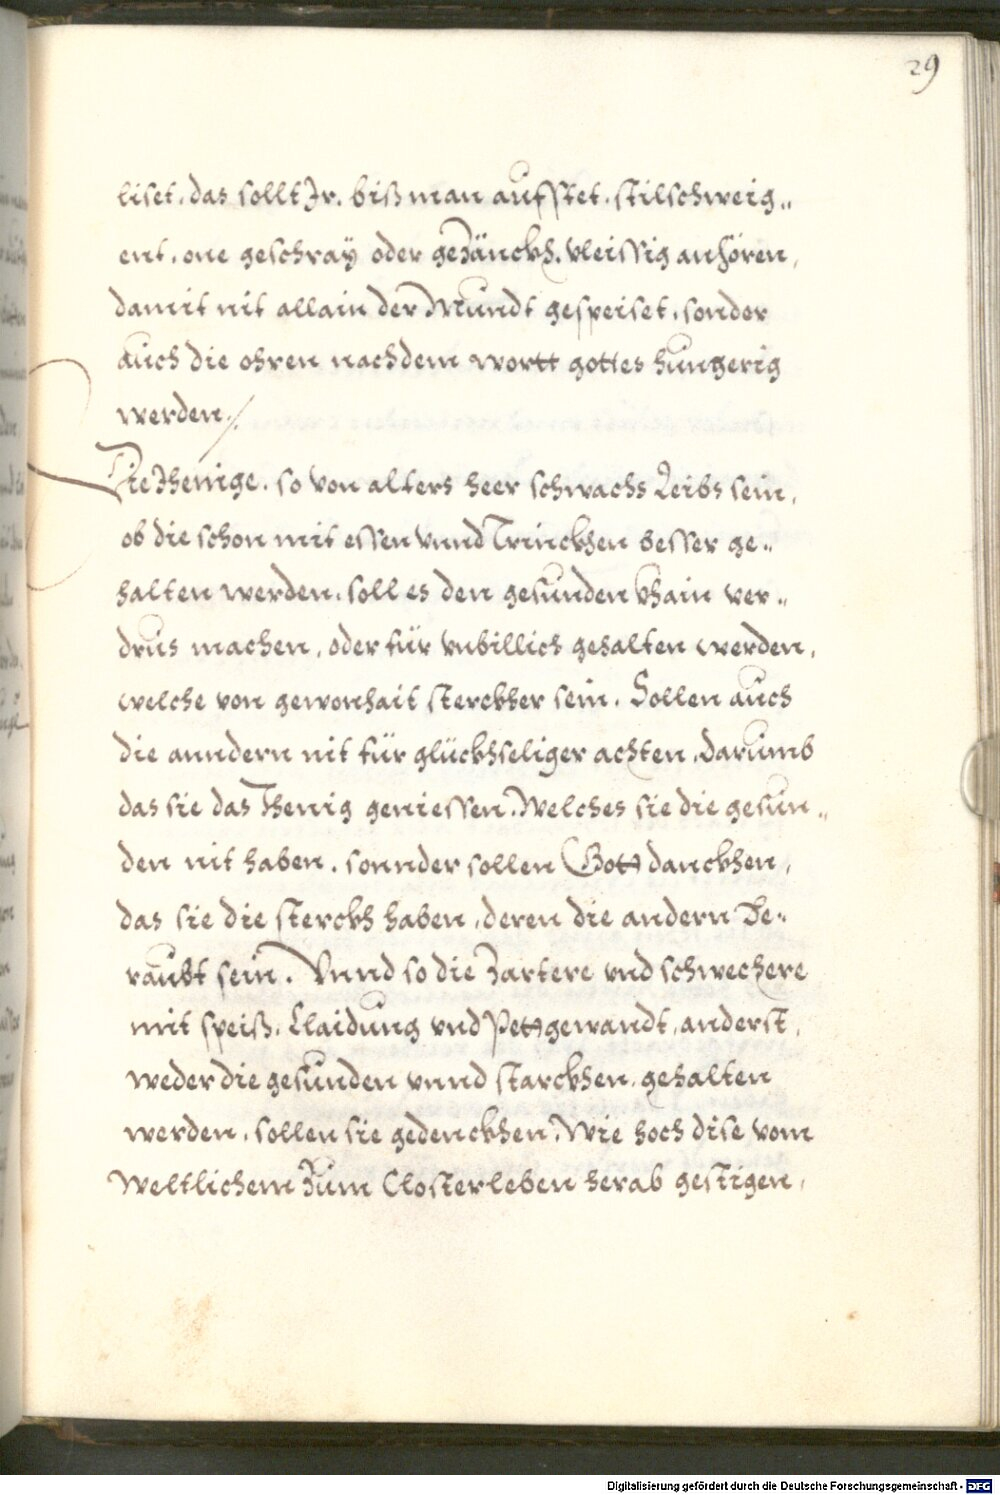 29
liset, das sollt Jr, biß man aufstet, stilschweig„
ent, one geschray oder gezänckh, vleissig anhören,
damit nit allain der Mundt gespeiset, sonder
auch die ohren nach dem wortt gottes hungerig
werden./.
Die Jhenige, so von alters heer schwachs Leibs sein,
ob die schon mit essen vnnd Trinckhen besser ge„
halten werden, soll es den gesunden khain ver„
drus machen, oder für vnbillich gehalten werden,
welche von gewonhait sterckher sein. Sollen auch
die anndern nit für glückhseliger achten, darumb
das sie das Jhenig geniessen, Welches sie die gesun„
den nit haben, sonnder sollen Gott danckhen,
das sie die sterckh haben, deren die andern be„
raubt sein. Vnnd so die Zartere vnd schwechere
mit speiß, Claidung vnd Pettgewandt, anderst,
weder die gesunden vnnd starckhen, gehalten
werden, sollen sie gedenckhen, Wie hoch dise vom
Weltlichem Zum Closterleben herab gestigen,
Digitalisierung gefördert durch die Deutsche Forschungsgemeinschaft - DFG